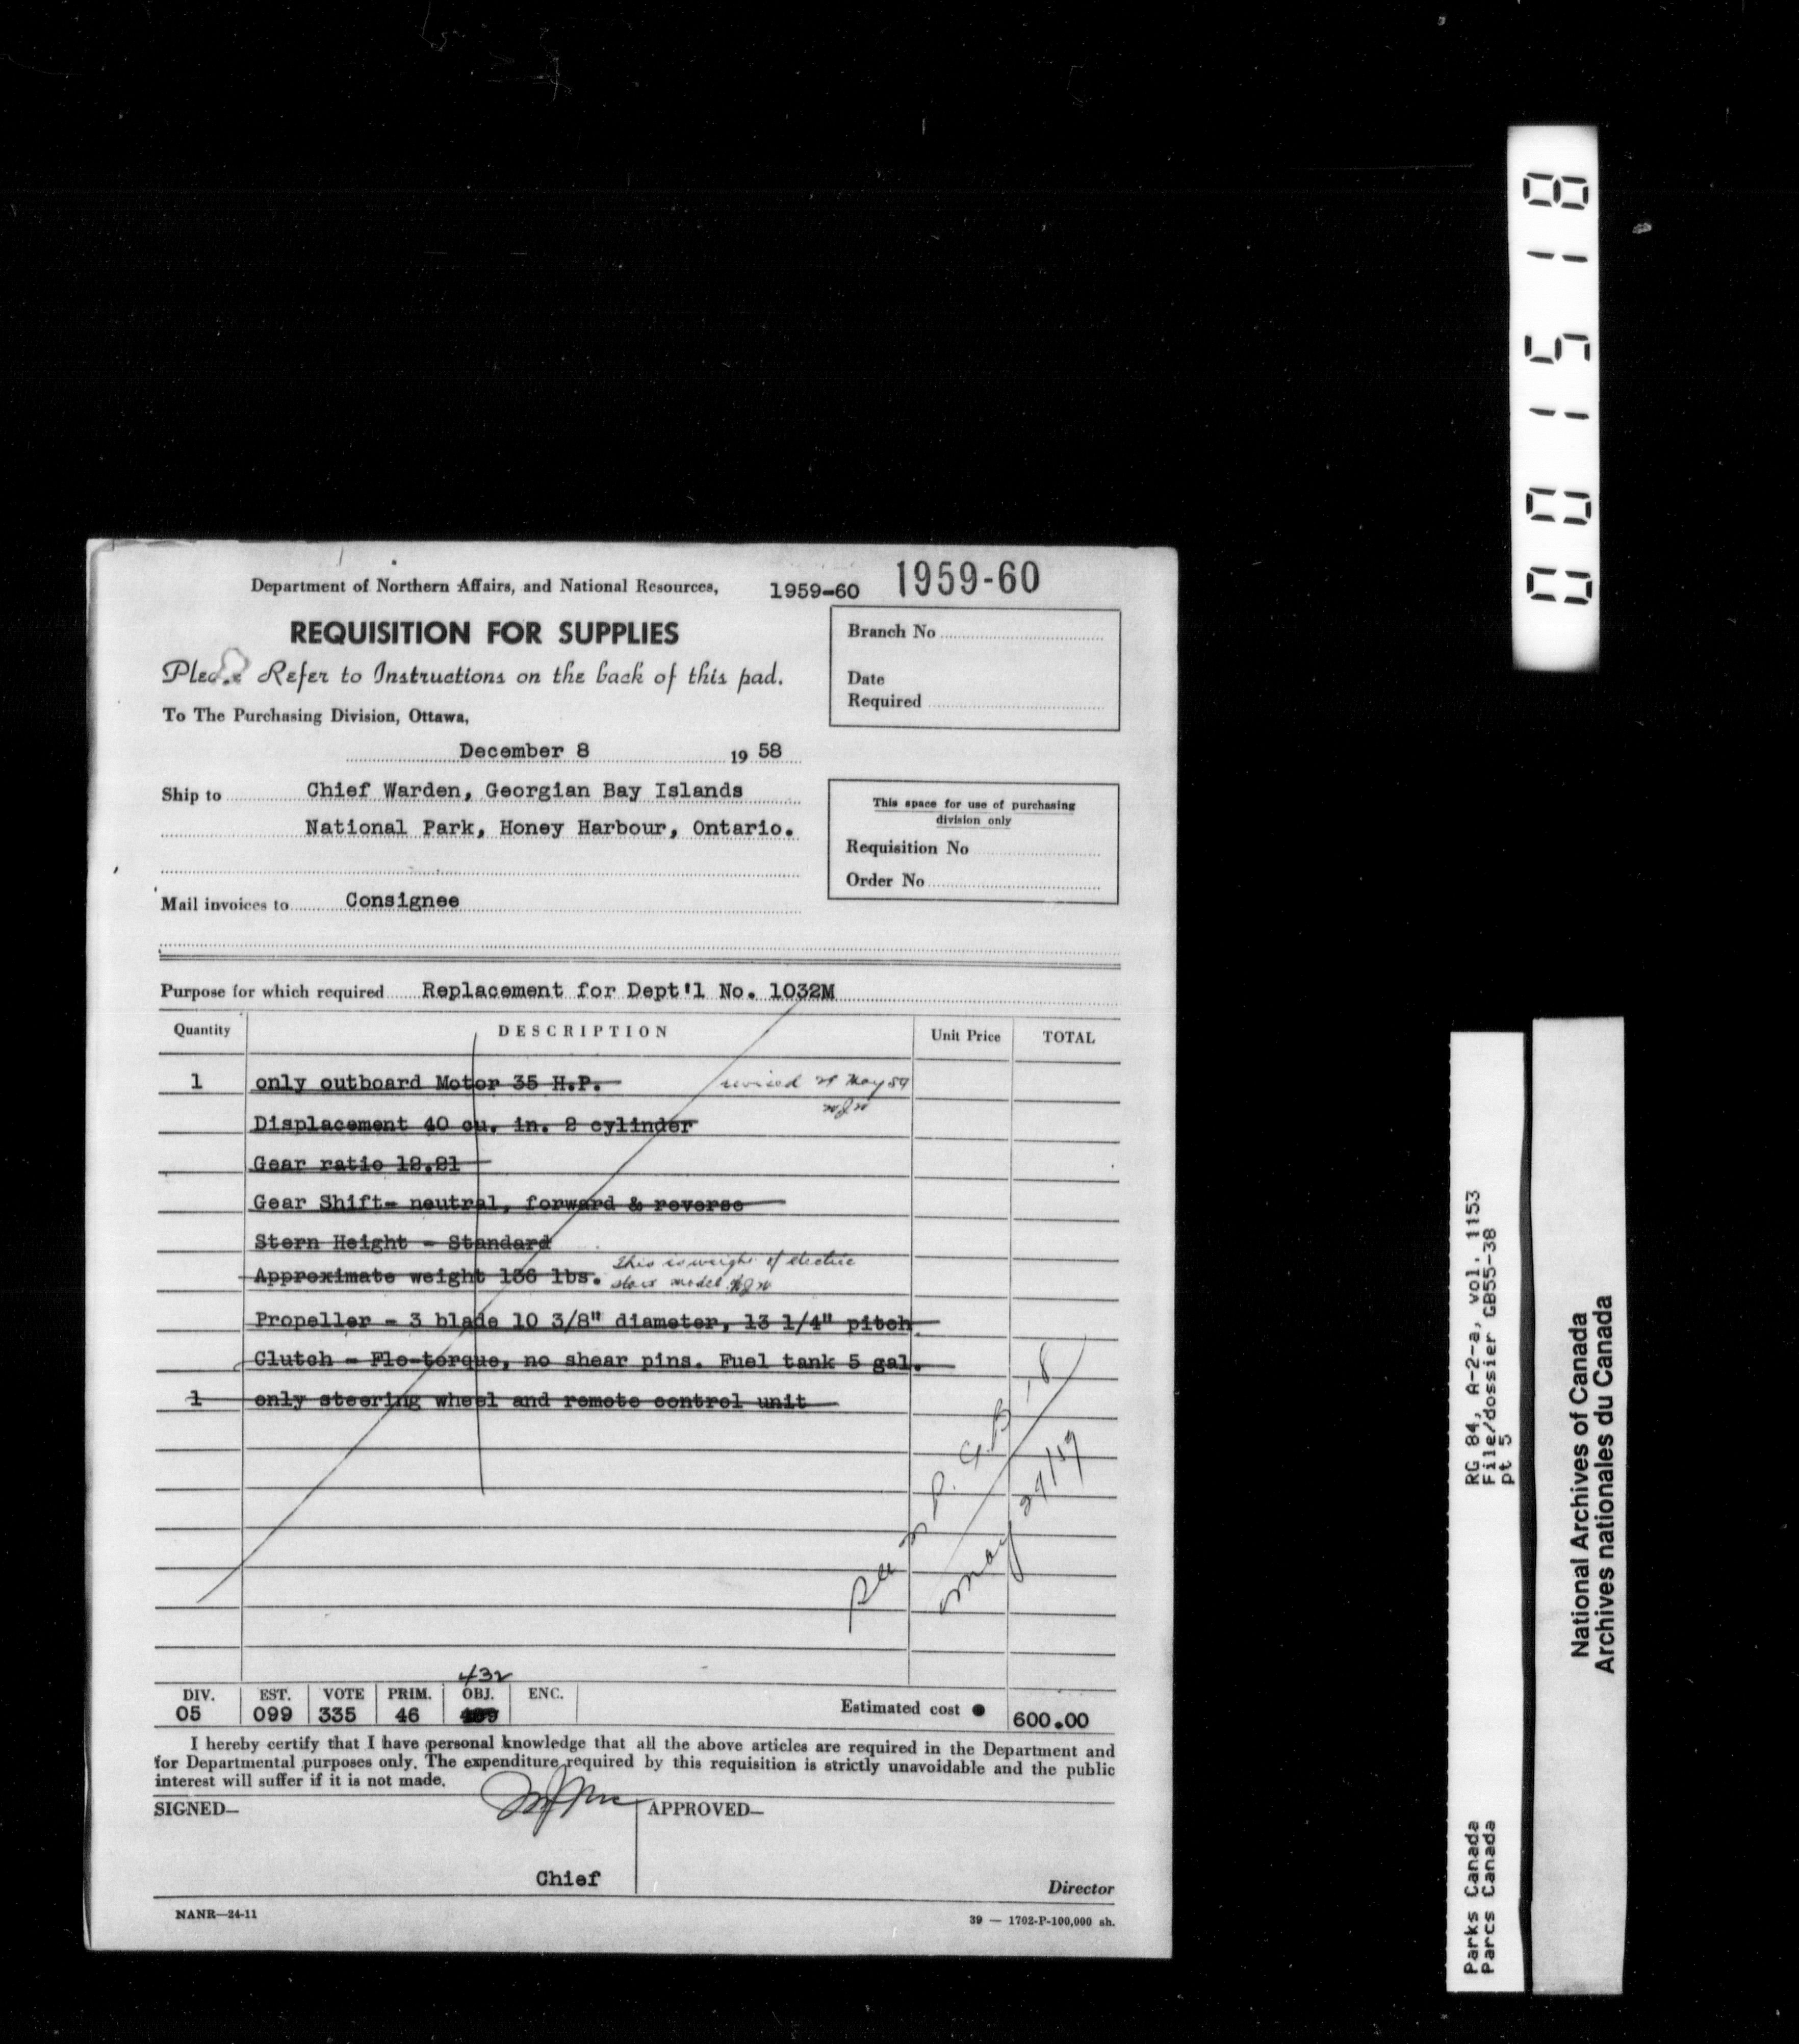 Department of Northern Affairs, and National Resources, 1959-60 1959-60
REQUISITION FOR SUPPLIES
Please Refer to Instructions on the back of this pad.
To The Purchasing Division, Ottawa,
Branch No
Date
Required
December 8 19 58
Ship to Chief Warden, Georgian Bay Islands
National Park, Honey Harbour, Ontario.
This space for use of purchasing
division only
Requisition No
Order No
Mail invoices to Consignee
Purpose for which required Replacement for Dept'l No. 1032M
Quantity DESCRIPTION Unit Price TOTAL
1 only outboard Motor 35 H.P. revised 29 May 59
Displacement 40 cu. in. 2 cylinder
Gear ratio 12.21
Gear Shift- neutral, forward & reverse
Stern Height - Standard
This is weight of electric
Approximate weight 136 lbs. start model
Propeller - 3 blade 10 3/8" diameter, 13 1/4" pitch
Clutch - Flo-torque, no shear pins. Fuel tank 5 gal.
1 only steering wheel and remote control unit
P. G.B. -8
May 29/59
432
DIV. EST. VOTE PRIM. OBJ. ENC. Estimated cost
05 099 335 46 600.00
I hereby certify that I have personal knowledge that all the above articles are required in the Department and
for Departmental purposes only. The expenditure required by this requisition is strictly unavoidable and the public
interest will suffer if it is not made.
SIGNED— APPROVED—
Chief
Director
NANR—24-11 39 — 1702-P-100,000 sh.
001518
RG 84, A-2-a, vol. 1153
File/dossier GB55-38
pt 5
Parks Canada
Parcs Canada
National Archives of Canada
Archives nationales du Canada